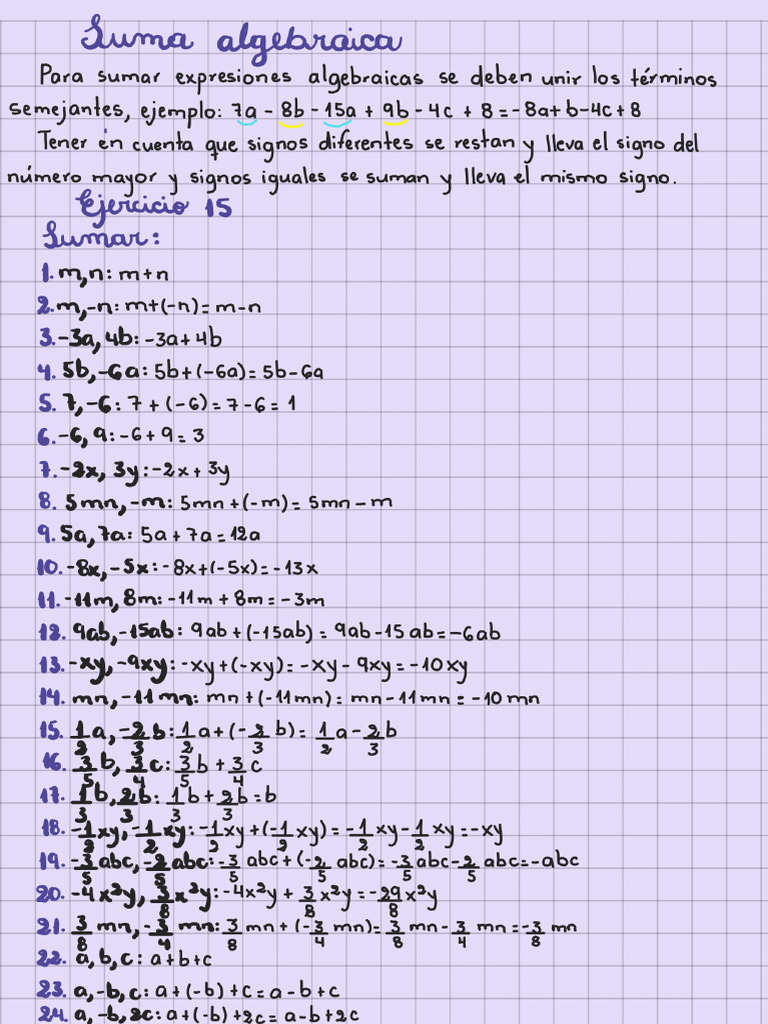 Suma algebraica
Para sumar expresiones algebraicas se deben unir los términos
semejantes, ejemplo: 7a - 8b - 15a + 9b - 4c + 8 = -8a + b - 4c + 8
Tener en cuenta que signos diferentes se restan y lleva el signo del
número mayor y signos iguales se suman y lleva el mismo signo.
Ejercicio 15
Sumar:
1. m, n: m + n
2. m, -n: m + (-n) = m - n
3. -3a, 4b: -3a + 4b
4. 5b, -6a: 5b + (-6a) = 5b - 6a
5. 7, -6: 7 + (-6) = 7 - 6 = 1
6. -6, 9: -6 + 9 = 3
7. -2x, 3y: -2x + 3y
8. 5mn, -m: 5mn + (-m) = 5mn - m
9. 5a, 7a: 5a + 7a = 12a
10. -8x, -5x: -8x + (-5x) = -13x
11. -11m, 8m: -11m + 8m = -3m
12. 9ab, -15ab: 9ab + (-15ab) = 9ab - 15ab = -6ab
13. -xy, -9xy: -xy + (-xy) = -xy - 9xy = -10xy
14. mn, -11mn: mn + (-11mn) = mn - 11mn = -10mn
15. 1/2 a, -2/3 b: 1/2 a + (-2/3 b) = 1/2 a - 2/3 b
16. 3/5 b, 3/4 c: 3/5 b + 3/4 c
17. 1/3 b, 2/3 b: 1/3 b + 2/3 b = b
18. -1/2 xy, -1/2 xy: -1/2 xy + (-1/2 xy) = -1/2 xy - 1/2 xy = -xy
19. -3/5 abc, -2/5 abc: -3/5 abc + (-2/5 abc) = -3/5 abc - 2/5 abc = -abc
20. -4x²y, 3/8 x²y: -4x²y + 3/8 x²y = -29/8 x²y
21. 3/8 mn, -3/4 mn: 3/8 mn + (-3/4 mn) = 3/8 mn - 3/4 mn = -3/8 mn
22. a, b, c: a + b + c
23. a, -b, c: a + (-b) + c = a - b + c
24. a, -b, 2c: a + (-b) + 2c = a - b + 2c